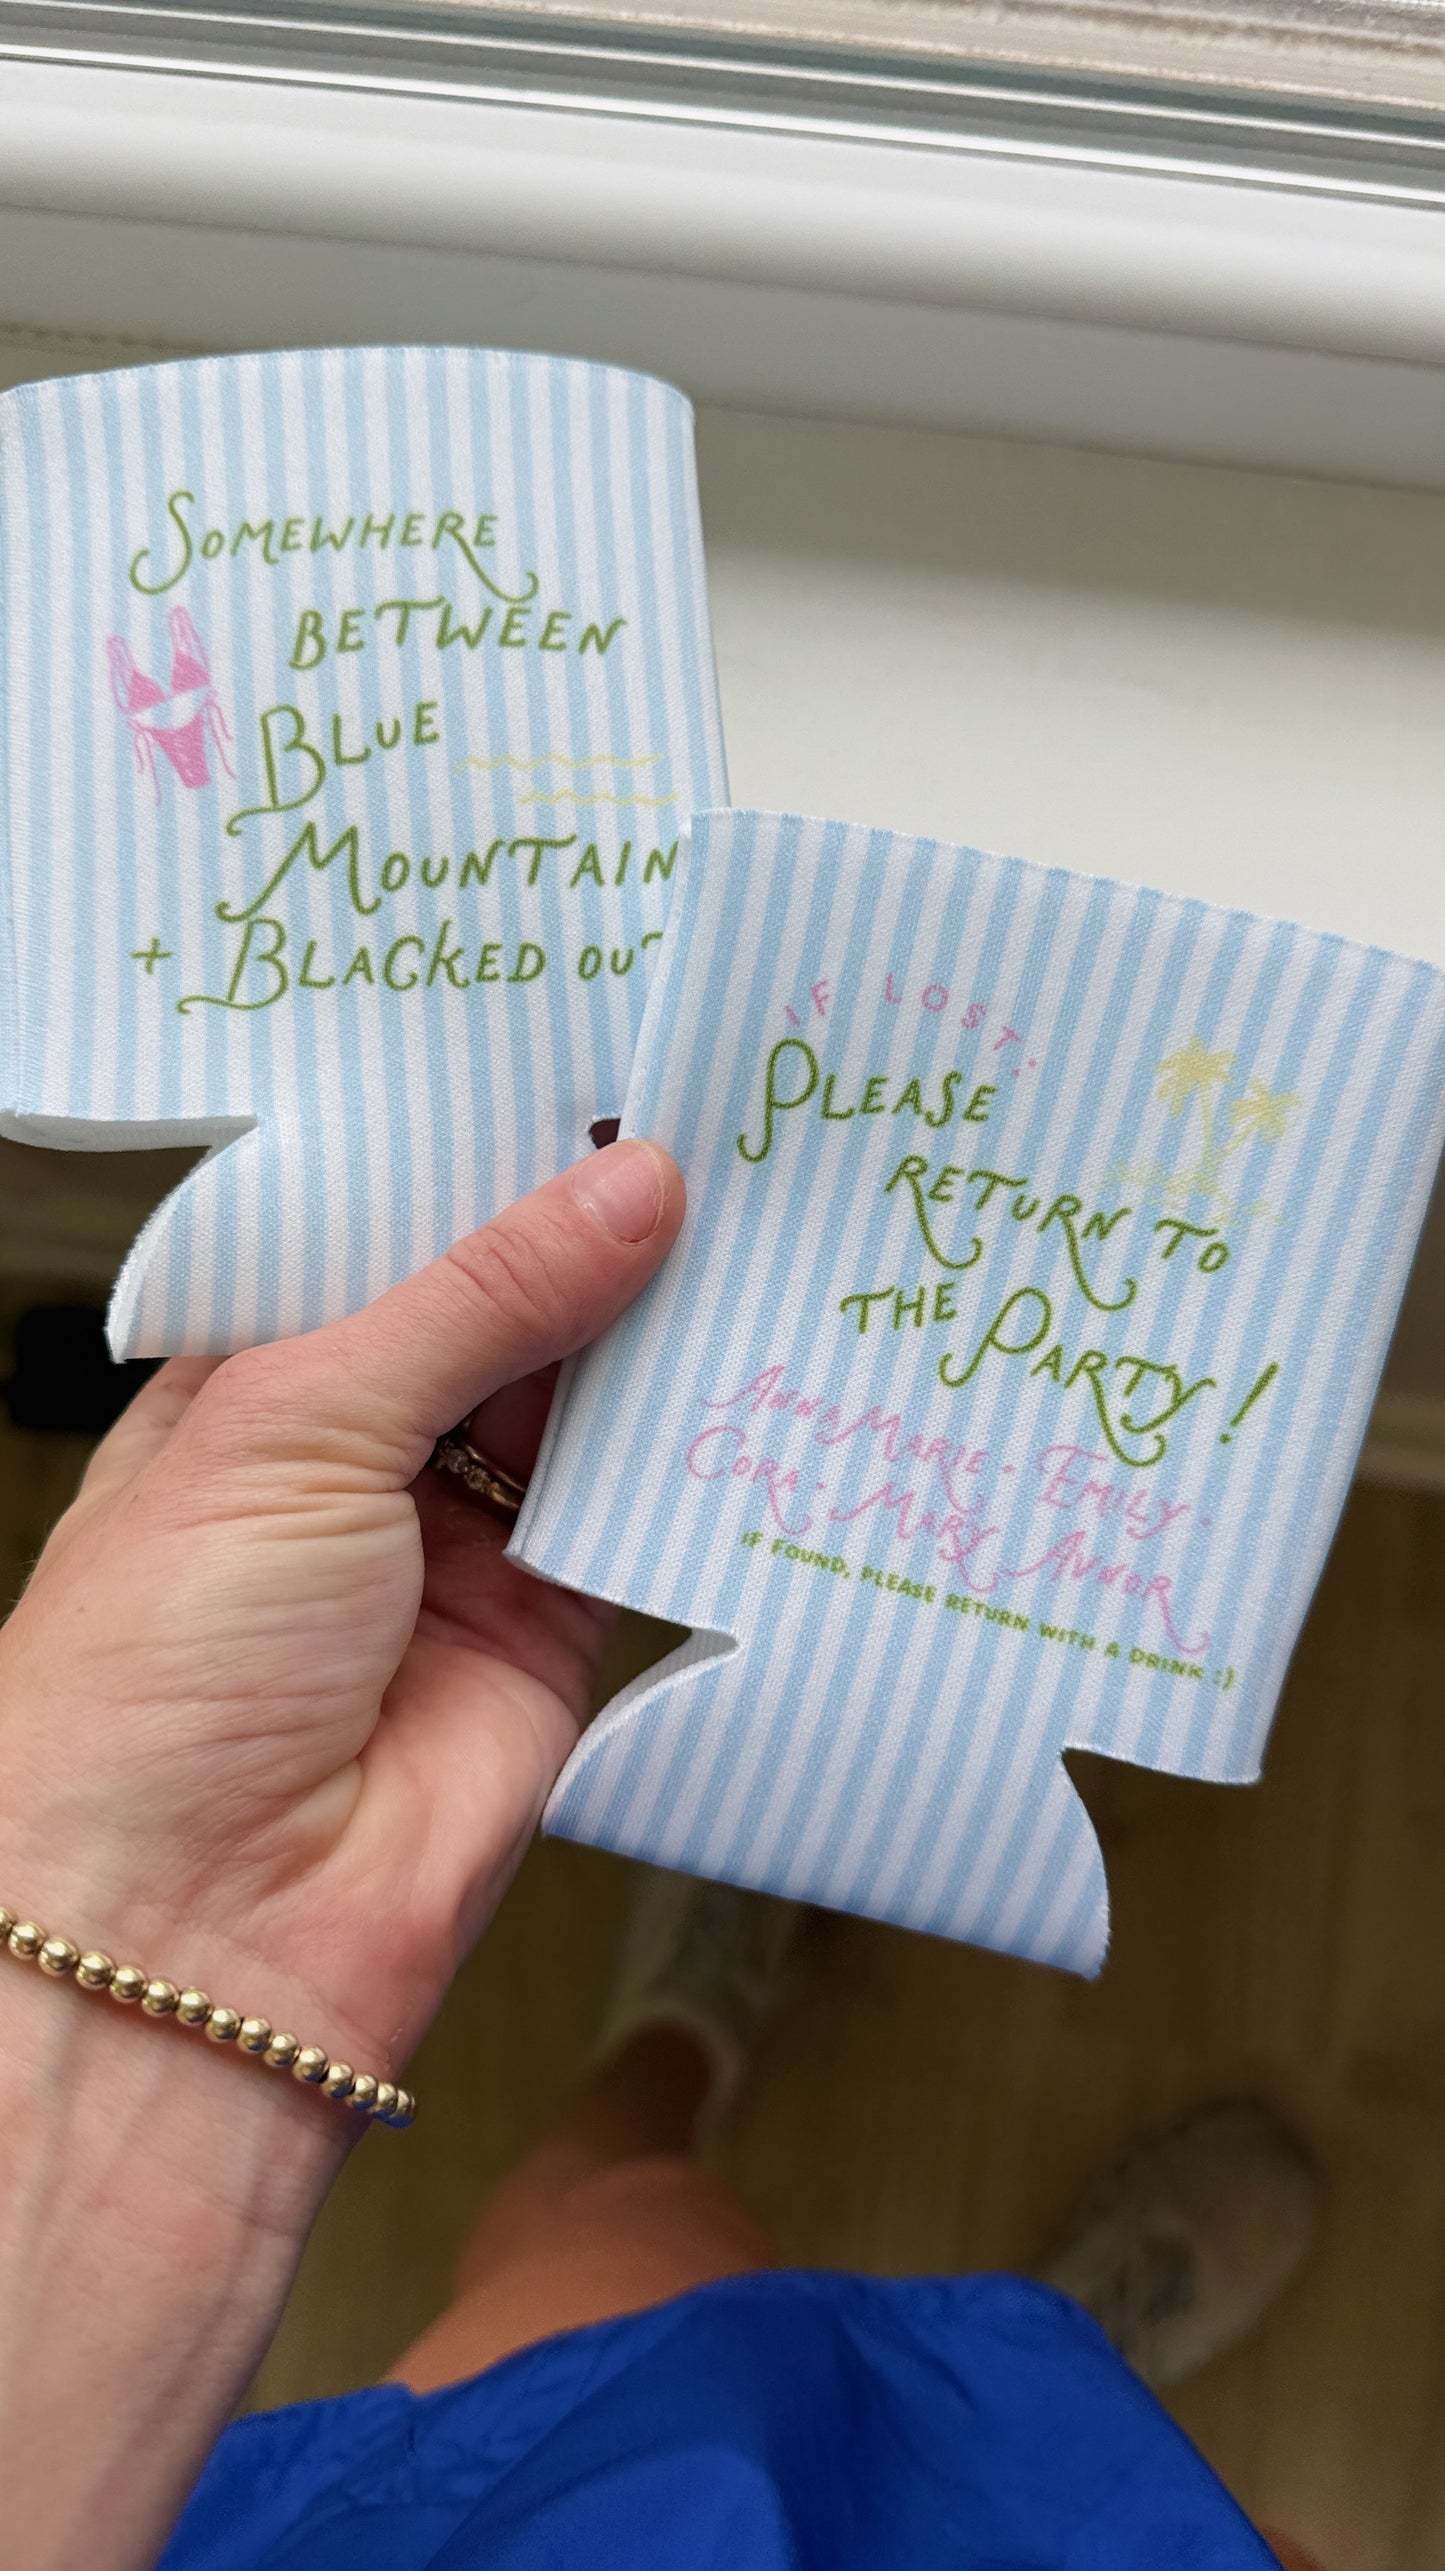 SOMEWHERE
BETWEEN
BLUE
MOUNTAIN
+ BLACKED OUT
IF LOST:
PLEASE
RETURN TO
THE PARTY!
ANNAMARIE · EMILY ·
CORA · MARY ANNOR
IF FOUND, PLEASE RETURN WITH A DRINK :)